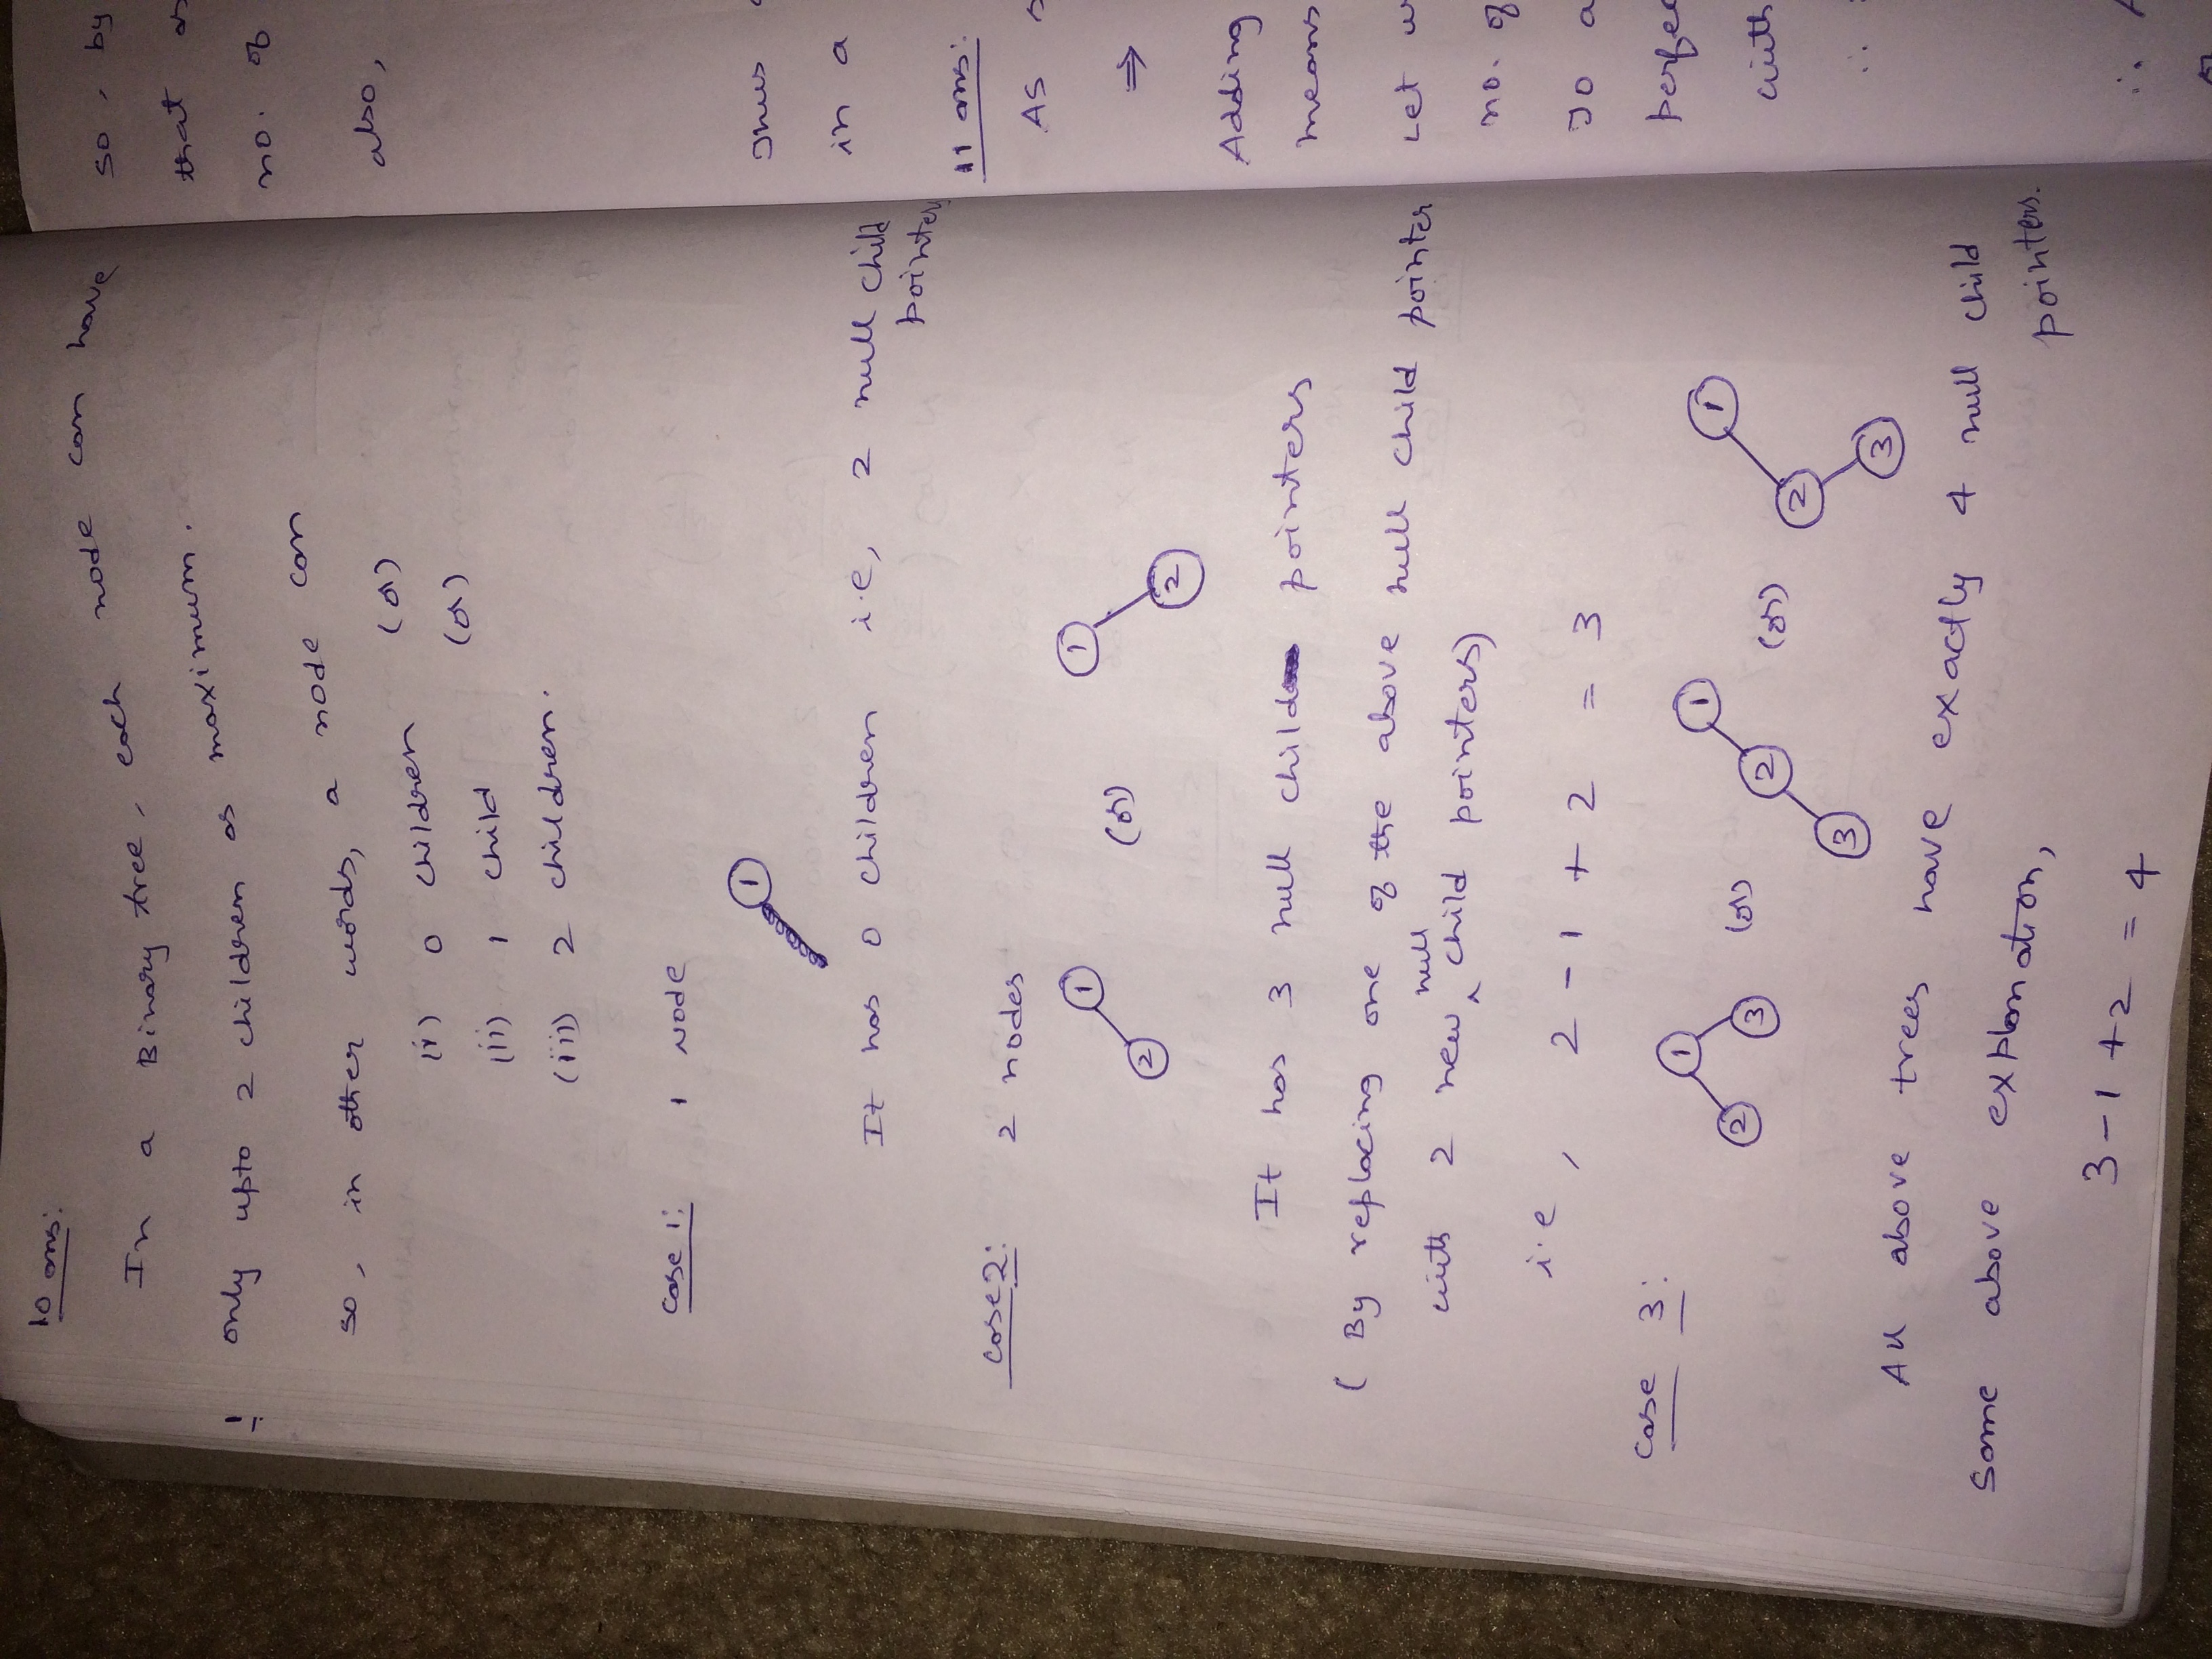 10 ans:
In a Binary tree, each node can have
only upto 2 children as maximum.
so, in other words, a node can
(i) 0 children (or)
(ii) 1 child (or)
(iii) 2 children.
case 1: 1 Node
1
It has 0 children i.e, 2 null child
pointers
case 2: 2 nodes
1 1
2 (or) 2
It has 3 null child pointers
( By replacing one of the above null child pointer
with 2 new null child pointers)
i.e, 2 - 1 + 2 = 3
case 3:
1 1 1
2 3 (or) 2 (or) 2
3 3
All above trees have exactly 4 null child
pointers.
Same above explanation,
3 - 1 + 2 = 4
so, by
that
no. of
also,
Thus
in a
11 ans:
As
⇒
Adding
means
Let
no. of
To a
with
∴